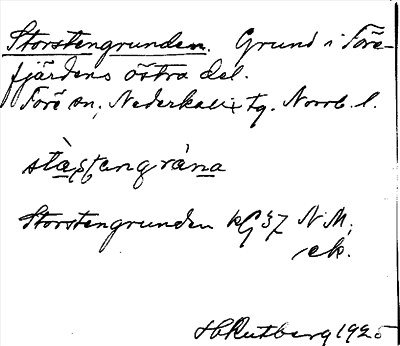 Storstengrunden. Grund i Före-
fjärdens östra del.
Töre sn, Nederkalix tg. Norrb. l.
Storstengrunden kG 37 N.M.
ek.
H Rutberg 1925